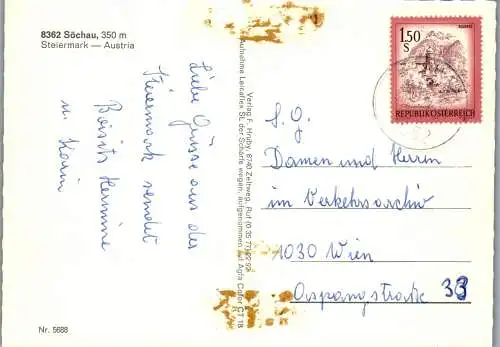 8362 Söchau, 350 m
Steiermark — Austria
Liebe Grüsse aus der
Steiermark sendet
Boisits Hermine
u. Karin
Nr. 5688
Verlag F. Hruby, 8740 Zeltweg, Ruf (0 35 77) 22 92
Aufnahme Leicaflex SL der Schärfe wegen, aufgenommen auf Agfa Color CT 18
1.50
S
REPUBLIK ÖSTERREICH
S. G.
Damen und Herren
im Verkehrsarchiv
1030 Wien
Aspangstraße 33